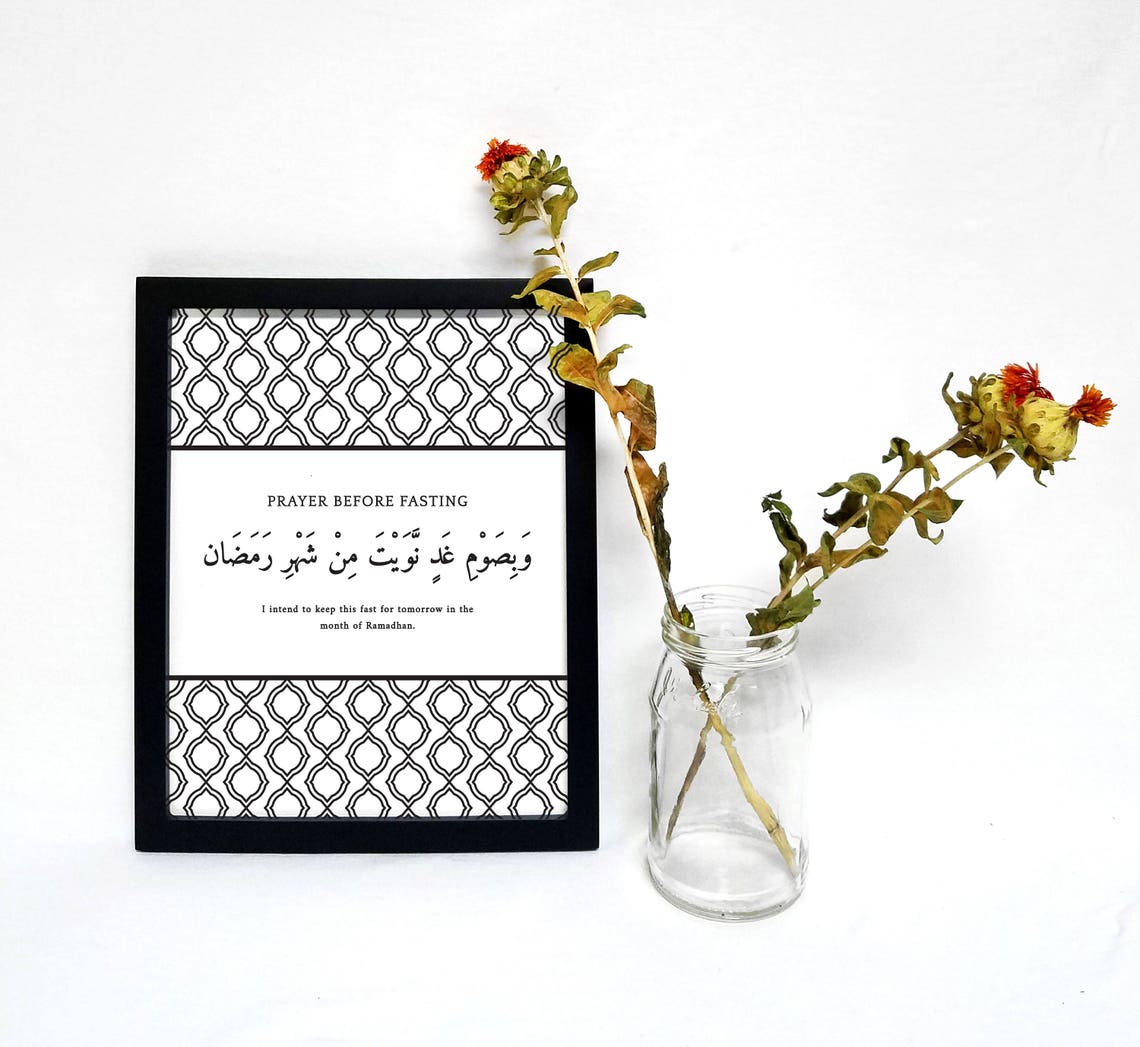 PRAYER BEFORE FASTING
وَبِصَوْمِ غَدٍ نَّوَيْتَ مِنْ شَهْرِ رَمَضَان
I intend to keep this fast for tomorrow in the
month of Ramadhan.